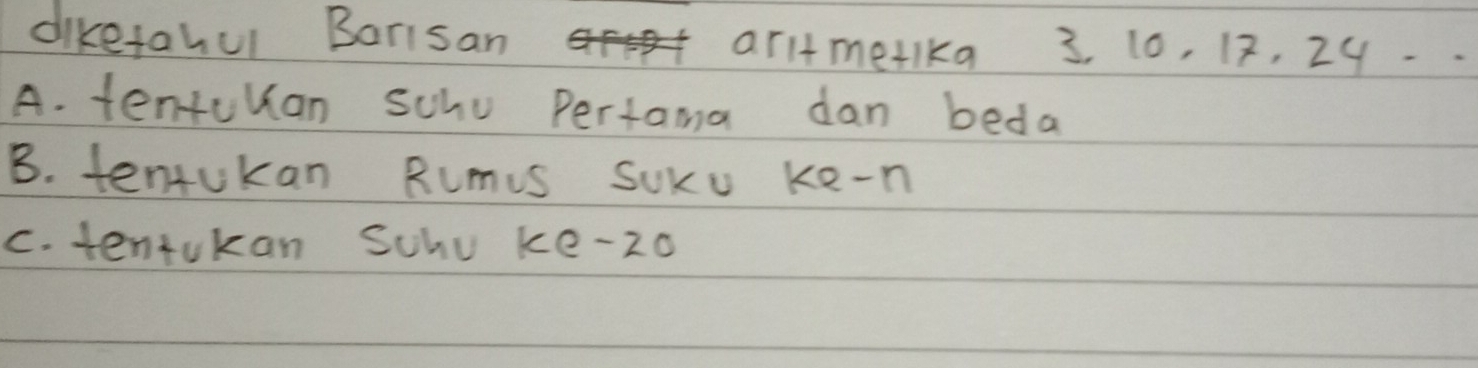 diketahui Barisan aritmetika 3, 10, 17, 24 . .
A. tentukan suhu Pertama dan beda
B. tentukan Rumus suku ke-n
C. tentukan Suhu ke-20